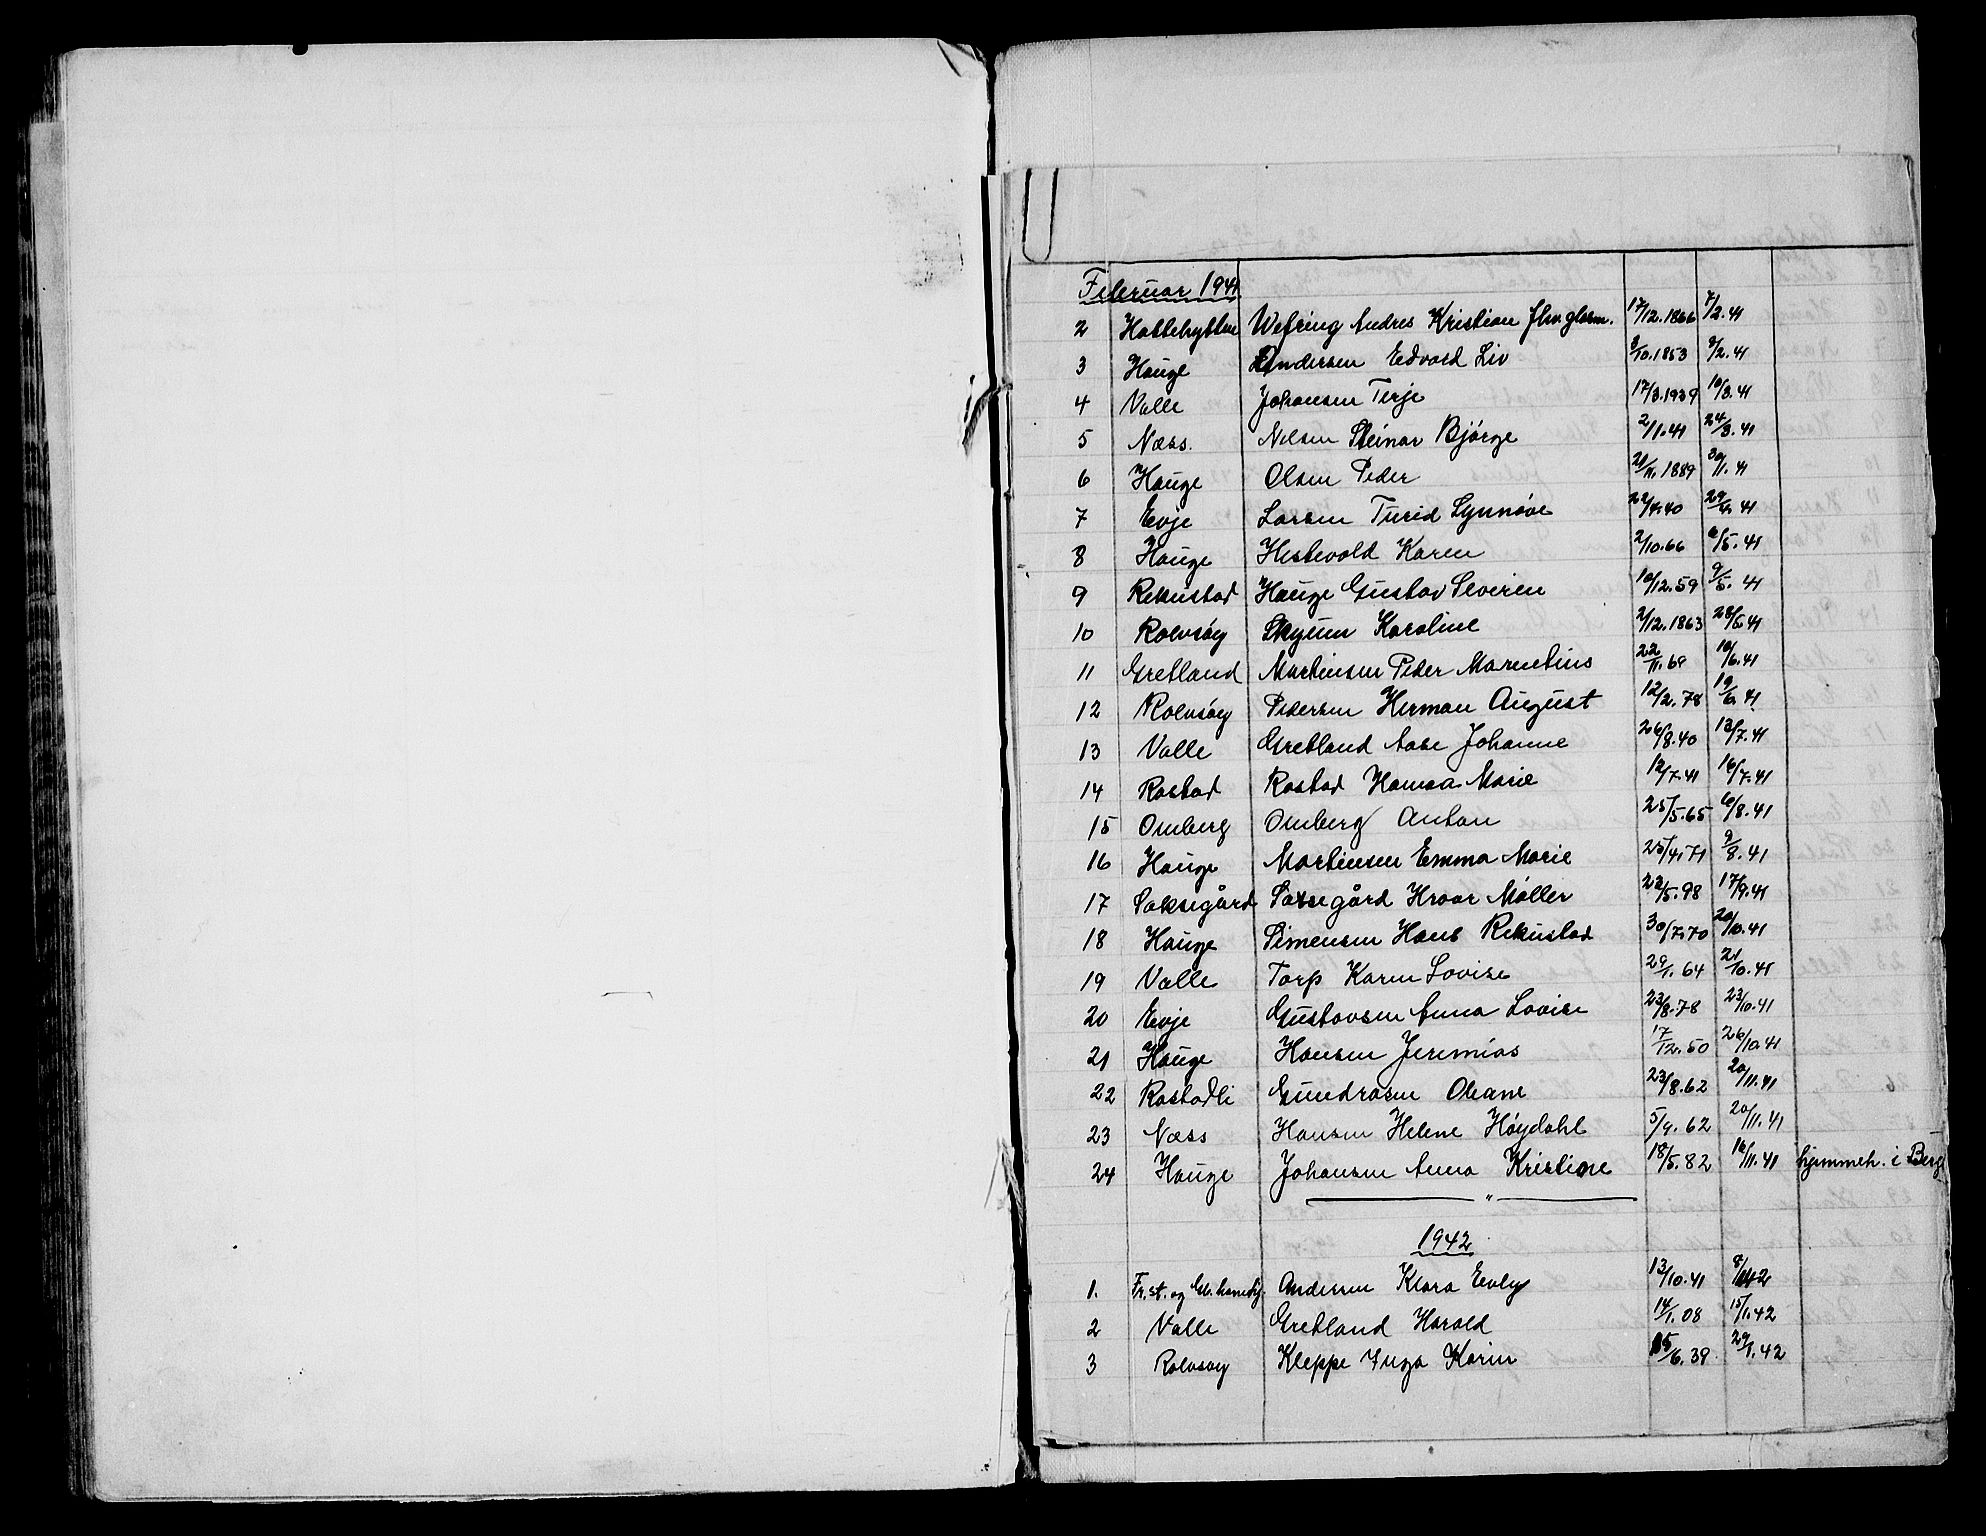 Februar 1941
2 Hattehytten Wefring Andres Kristian 17/12.1866 7/2.41
3 Hauge Andersen Edvard Liv 3/10.1853 9/2.41
4 Valle Johansen Terje 17/3.1939 10/3.41
5 Næss. Nilsen Steinar Bjørge 2/1.41 24/3.41
6 Hauge Olsen Peder 21/11.1889 30/1.41
7 Evje Larsen Turid Synnøve 22/4.40 29/4.41
8 Hauge Hestevold Karen 2/10.66 6/5.41
9 Rekustad Hauge Gustav Severin 10/12.59 9/5.41
10 Rolvsøy Skyum Karoline 2/12.1863 28/5.41
11 Gretland Martinsen Peder Marentius 22/11.69 10/6.41
12 Rolvsøy Pedersen Herman August 12/2.78 19/6.41
13 Valle Gretland Aase Johanne 26/8.40 13/7.41
14 Rostad Rostad Hanna Marie 12/7.41 16/7.41
15 Omberg Omberg Anton 25/5.65 6/8.41
16 Hauge Martinsen Emma Marie 25/4.71 9/8.41
17 Saksegård Saxegård Hroar Møller 22/5.98 17/9.41
18 Hauge Simensen Hans Rekustad 30/7.70 20/10.41
19 Valle Torp Karen Lovise 29/1.64 21/10.41
20 Evje Gustavsen Anna Lovise 23/8.78 23/10.41
21 Hauge Hansen Jeremias 17/12.50 26/10.41
22 Rostadli Gundrosen Oleane 23/8.62 20/11.41
23 Næss Hansen Helene Høydahl 5/9.62 20/11.41
24 Hauge Johansen Anna Kristine 18/5.82 16/11.41 hjemmeh. i Berg
1942
1. Fr.st. og Andersen Klara Evely 13/10.41 8/1.42
2 Valle Gretland Harald 14/1.08 15/1.42
3 Rolvsøy Kleppe Inga Karin 15/6.39 29/1.42